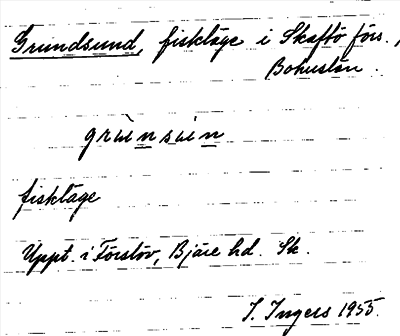 Grundsund, fiskläge i Skaftö förs.,
Bohuslän.
grùnsùn
fiskläge
Uppt. i Förslöv, Bjäre hd. Sk.
I. Ingers 1955.